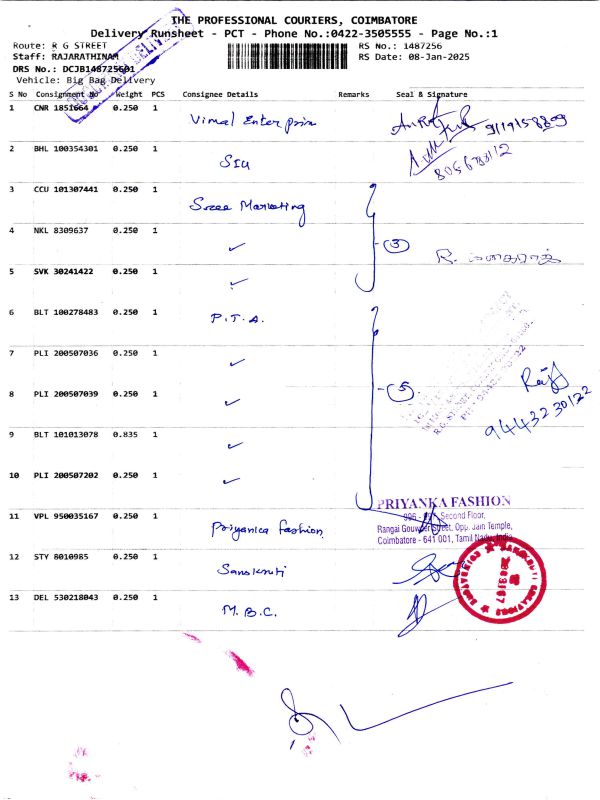 THE PROFESSIONAL COURIERS, COIMBATORE
Delivery Runsheet - PCT - Phone No.:0422-3505555 - Page No.:1
Route: R G STREET
RS No.: 1487256
Staff: RAJARATHINAM
RS Date: 08-Jan-2025
DRS No.: DCJB148725601
Vehicle: Big Bag Delivery
S No Consignment No Weight PCS Consignee Details Remarks Seal & Signature
1 CNR 1851664 0.250 1 Vimal Enterprin 9114158809
2 BHL 100354301 0.250 1 SIU
3 CCU 101307441 0.250 1 Sree Marketing
4 NKL 8309637 0.250 1 ✓ 3
5 SVK 30241422 0.250 1 ✓
6 BLT 100278483 0.250 1 P.T.A.
7 PLI 200507036 0.250 1 ✓
8 PLI 200507039 0.250 1 ✓ 5 9443230122
9 BLT 101013078 0.835 1 ✓
10 PLI 200507202 0.250 1 ✓
PRIYANKA FASHION
Second Floor,
11 VPL 950035167 0.250 1 Priyanka fashion
Rangai Gowder Street, Opp. Jain Temple,
Coimbatore - 641 001, Tamil Nadu, India
12 STY 8010985 0.250 1 Sanskruti
13 DEL 530218043 0.250 1 M.B.C.